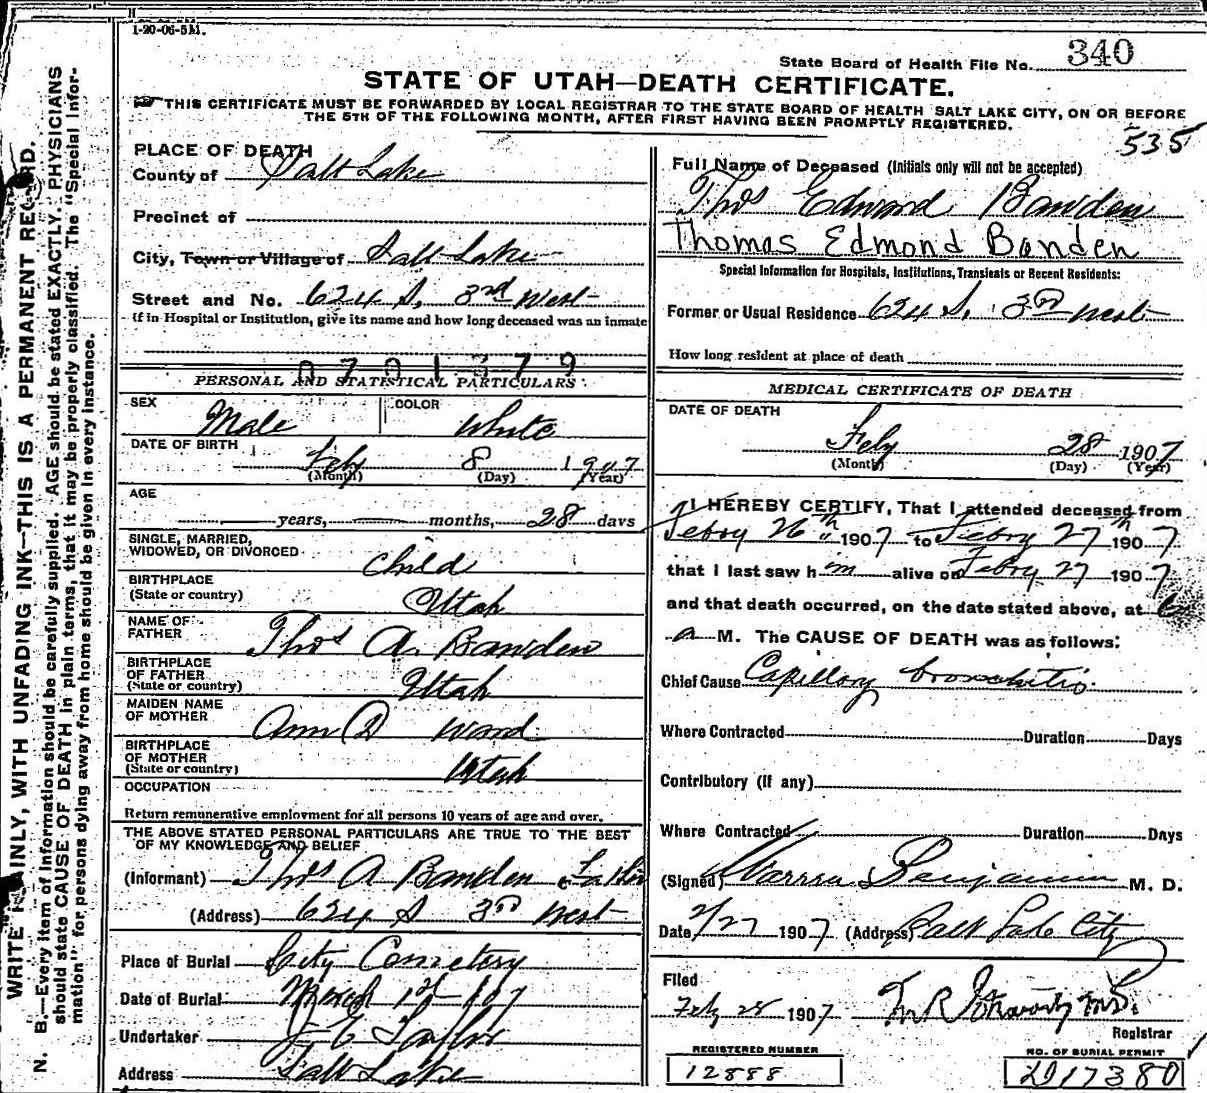 1-20-06-5M.
State Board of Health File No. 340
STATE OF UTAH—DEATH CERTIFICATE.
THIS CERTIFICATE MUST BE FORWARDED BY LOCAL REGISTRAR TO THE STATE BOARD OF HEALTH SALT LAKE CITY, ON OR BEFORE
THE 5TH OF THE FOLLOWING MONTH, AFTER FIRST HAVING BEEN PROMPTLY REGISTERED.
535
WRITE PLAINLY, WITH UNFADING INK—THIS IS A PERMANENT RECORD.
N. B.—Every item of information should be carefully supplied. AGE should be stated EXACTLY. PHYSICIANS
should state CAUSE OF DEATH in plain terms, that it may be properly classified. The "Special Infor-
mation" for persons dying away from home should be given in every instance.
PLACE OF DEATH
County of Salt Lake
Precinct of
City, Town or Village of Salt Lake
Street and No. 624 S. 3rd West
If in Hospital or Institution, give its name and how long deceased was an inmate
0701379
PERSONAL AND STATISTICAL PARTICULARS
SEX Male COLOR White
DATE OF BIRTH Feby 8 1907
(Month) (Day) (Year)
AGE
years, months, 28 days
SINGLE, MARRIED,
WIDOWED, OR DIVORCED Child
BIRTHPLACE
(State or country) Utah
NAME OF
FATHER Thos A. Bawden
BIRTHPLACE
OF FATHER
(State or country) Utah
MAIDEN NAME
OF MOTHER Ann D Ward
BIRTHPLACE
OF MOTHER
(State or country) Utah
OCCUPATION
Return remunerative employment for all persons 10 years of age and over.
THE ABOVE STATED PERSONAL PARTICULARS ARE TRUE TO THE BEST
OF MY KNOWLEDGE AND BELIEF
(Informant) Thos A Bawden Father
(Address) 624 S 3rd West
Place of Burial City Cemetery
Date of Burial March 1st 1907
Undertaker Taylor
Address Salt Lake
Full Name of Deceased (Initials only will not be accepted)
Thos Edward Bawden
Thomas Edmond Banden
Special Information for Hospitals, Institutions, Transients or Recent Residents:
Former or Usual Residence 624 S. 3rd West
How long resident at place of death
MEDICAL CERTIFICATE OF DEATH
DATE OF DEATH
Feby 28 1907
(Month) (Day) (Year)
I HEREBY CERTIFY, That I attended deceased from
Febry 26th 1907 to Febry 27th 1907
that I last saw him alive on Febry 27 1907
and that death occurred, on the date stated above, at 6
a M. The CAUSE OF DEATH was as follows:
Chief Cause Capillary bronchitis
Where Contracted Duration Days
Contributory (if any)
Where Contracted Duration Days
(Signed) Warren Benjamin M. D.
Date 2/27 1907 (Address) Salt Lake City
Filed
Feby 28 1907
Registrar
REGISTERED NUMBER
12888
NO. OF BURIAL PERMIT
2017380